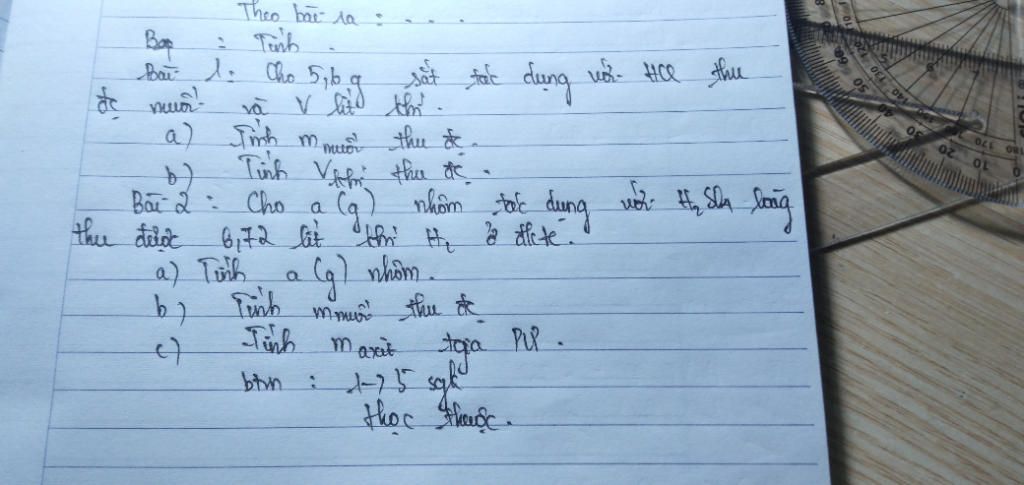 Theo bài ra : . . . .
Bạp : Tính .
Bài 1 : Cho 5,6 g sắt tác dụng với HCl thu
đc muối và V lít khí .
a) Tính m muối thu đc .
b) Tính V khí thu đc .
Bài 2 : Cho a (g) nhôm tác dụng với H2SO4 loãng
thu được 6,72 lít khí H2 ở đktc .
a) Tính a (g) nhôm .
b) Tính m muối thu đc
c) Tính m axit tgia PƯ .
btvn : 1 -> 5 sgk
học thuộc .